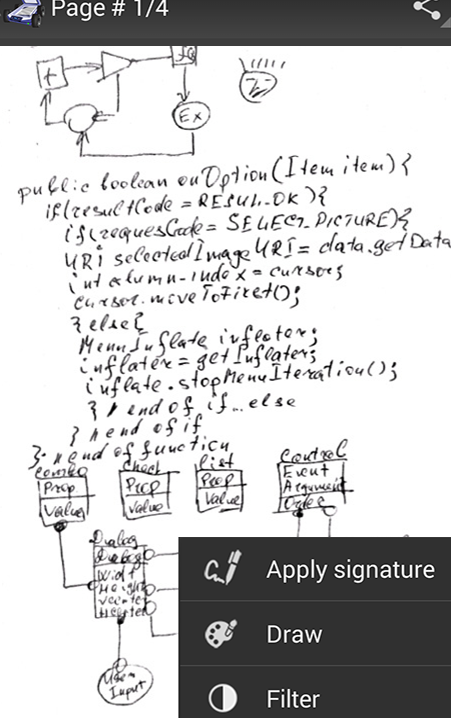 Page # 1/4
+
Ex
public boolean onOption(Item item){
if(resultCode = RESUL_OK){
if(requesCode = SELECT_PICTURE){
URI selectedImageURI = data.getData
int column-index = cursor;
cursor.moveToFirst();
} else{
MenuInflate inflater;
inflater = getInflater;
inflate.stopMenuIteration();
} // end of if...else
} // end of if
}; // end of function
Combo
Check
List
Control
Prop
Prop
Prop
Event
Value
Value
Value
Argument
Order
Dialog
Dialog
Widt
Height
Vcenter
Hcenter
User
Input
Apply signature
Draw
Filter